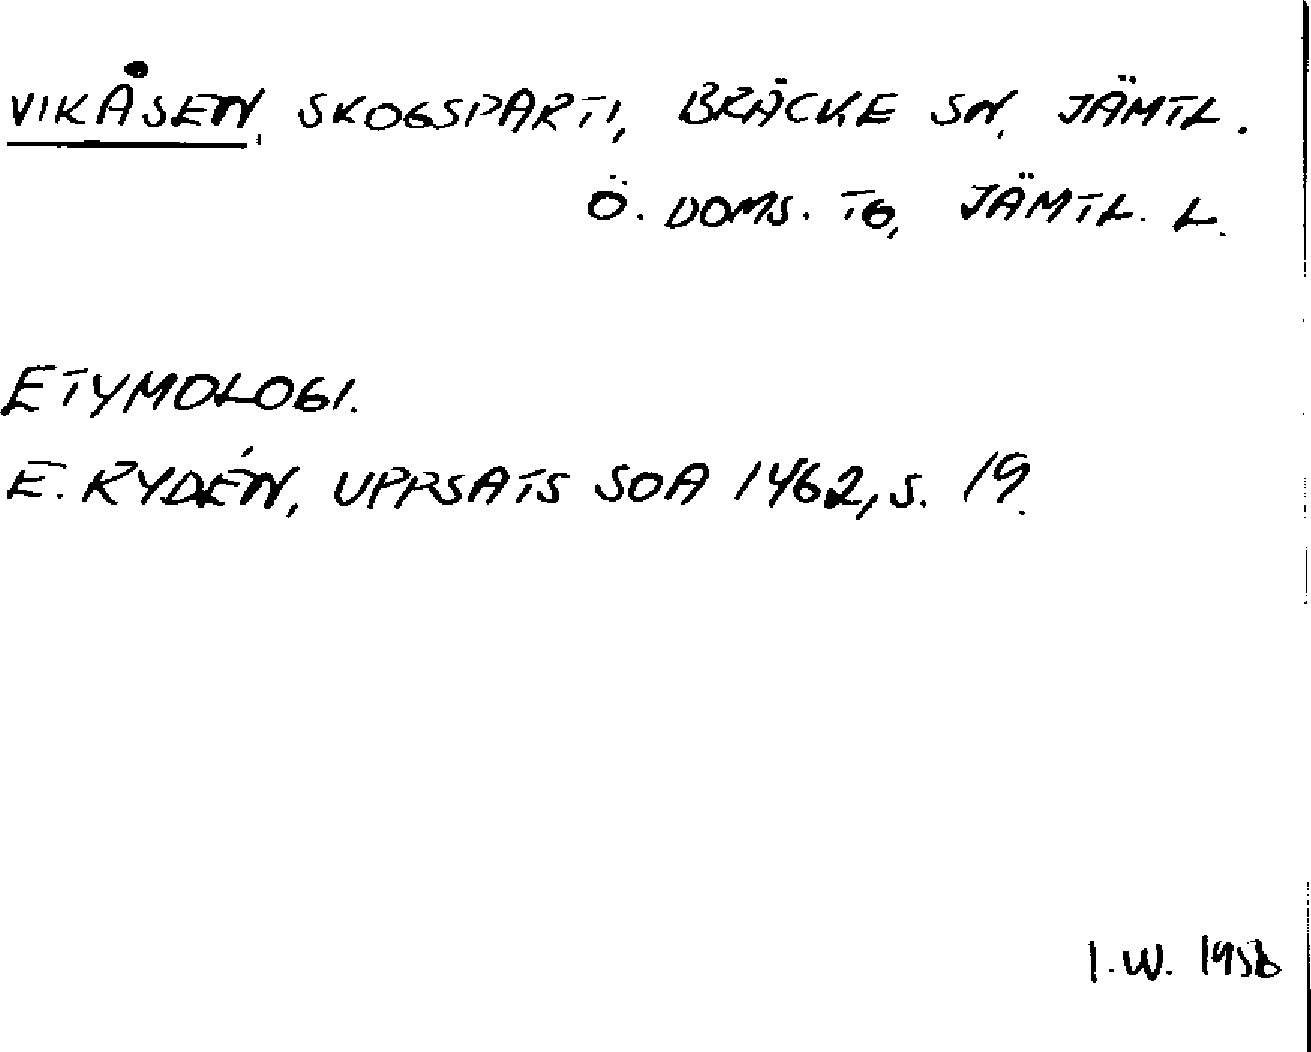 VIKÅSEN, SKOGSPARTI, BRÄCKE SN, JÄMTL.
Ö. DOMS. TG, JÄMTL. L.
ETYMOLOGI.
E. RYDÉN, UPPSATS SOA 1462, S. 19.
I.W. 1958